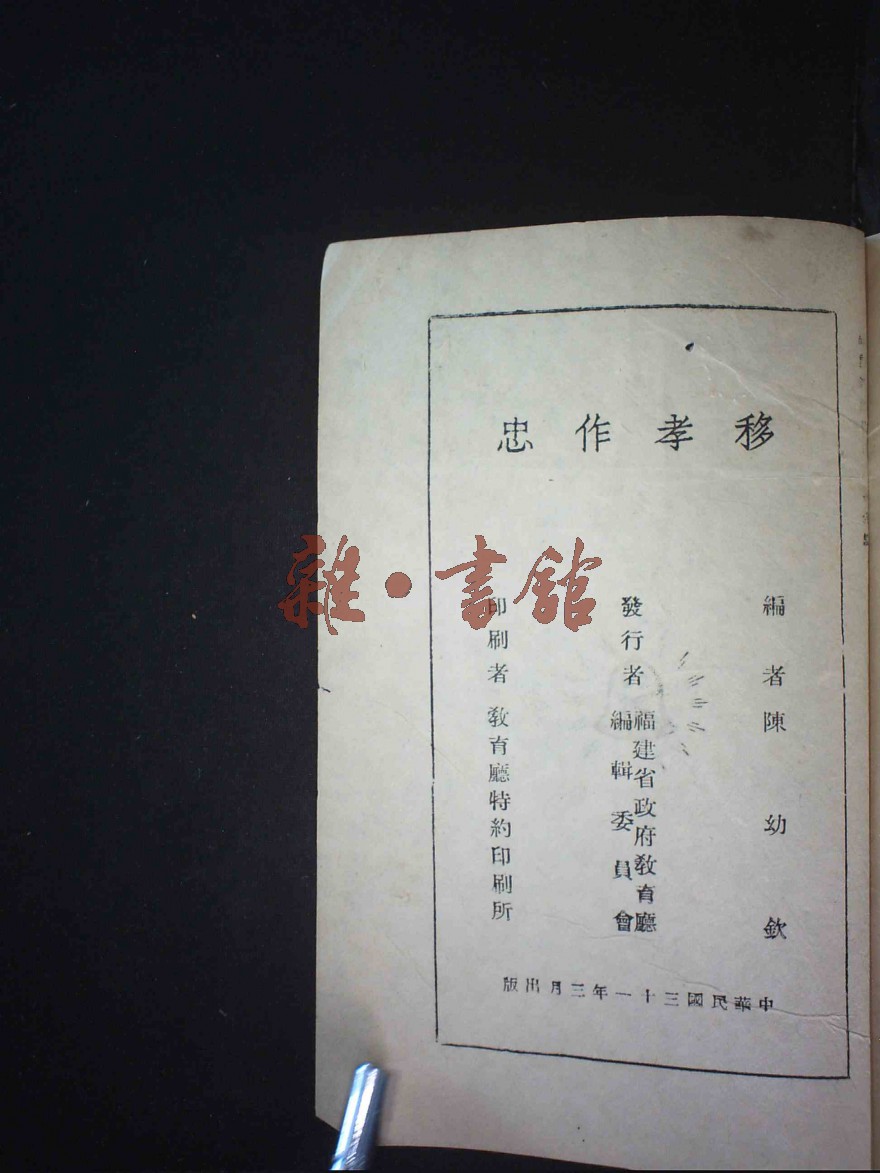 移孝作忠
編者陳幼欽
發行者福建省政府教育廳
編輯委員會
印刷者教育廳特約印刷所
中華民國三十一年三月出版
雜·書館